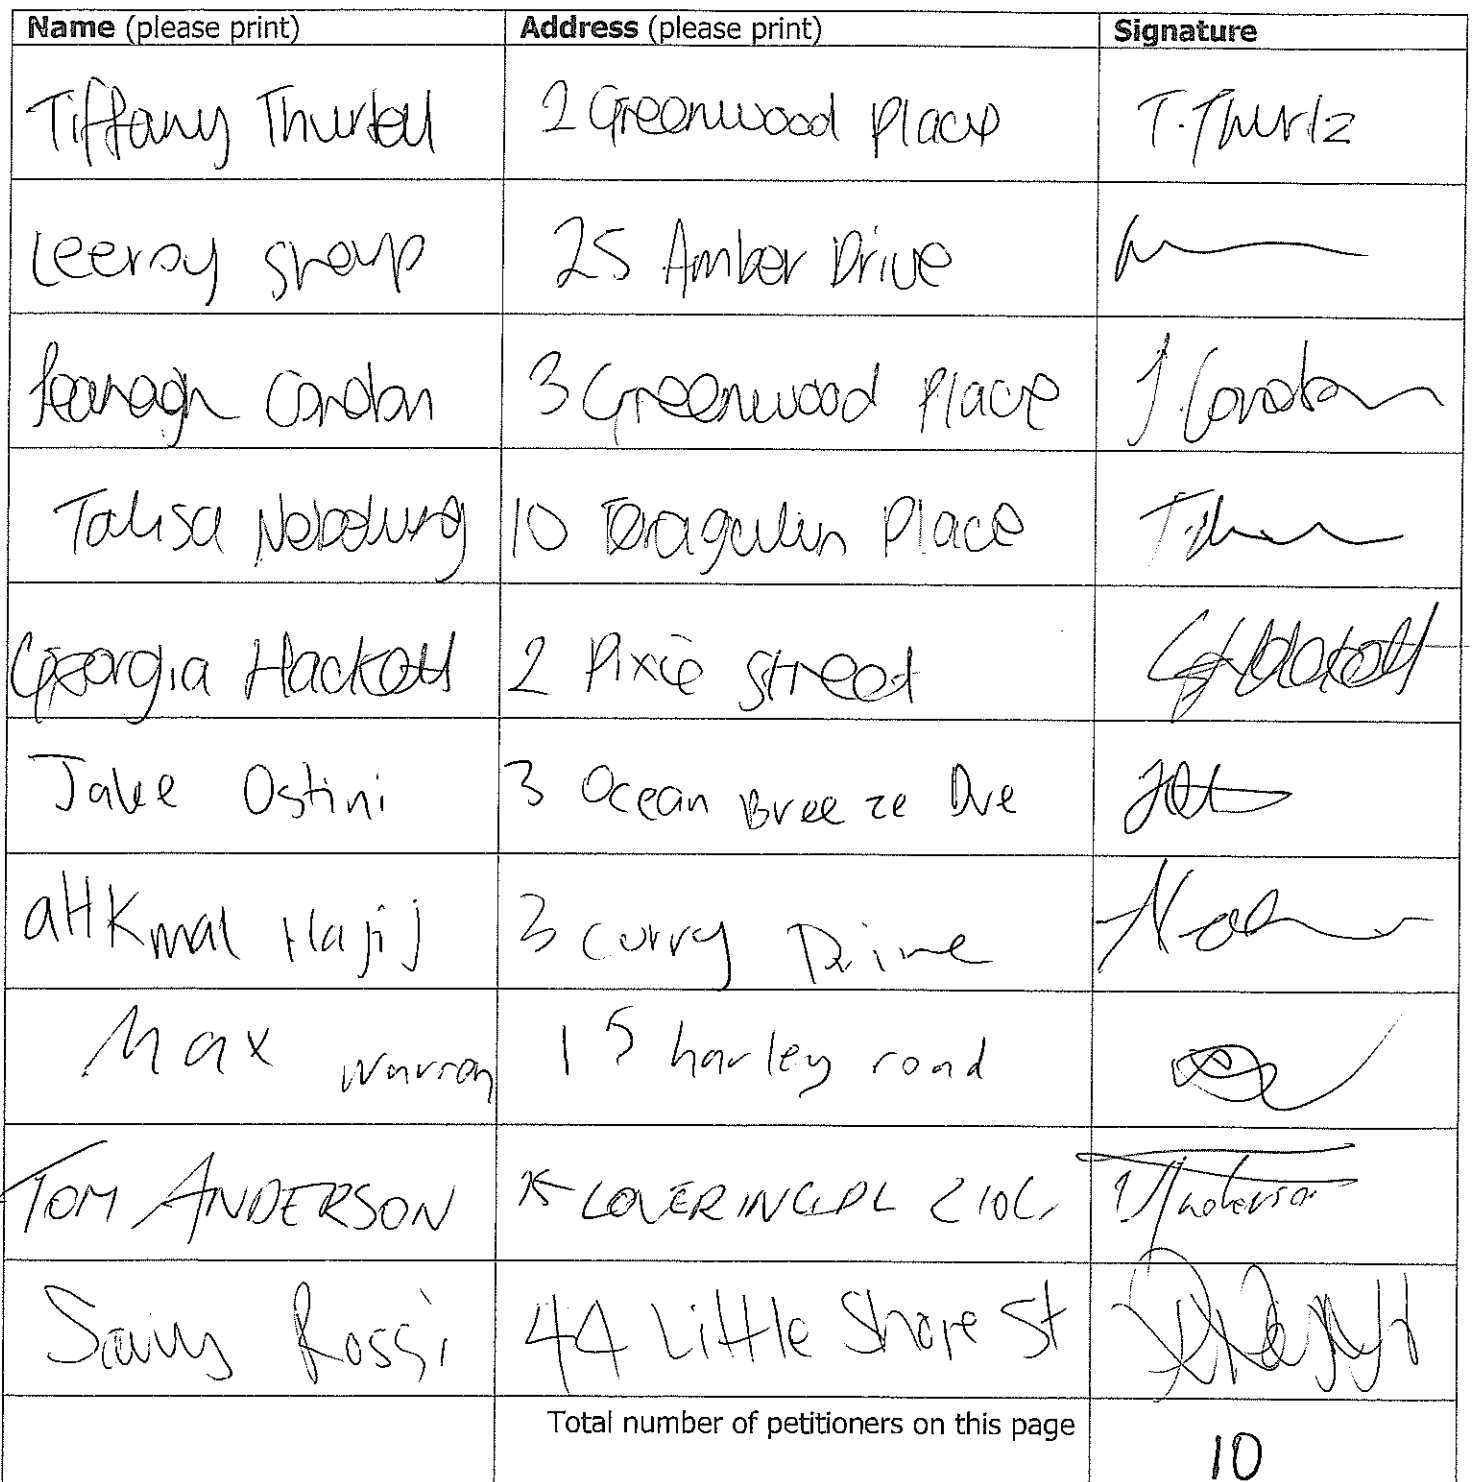 Name (please print) Address (please print) Signature
Tiffany Thurtell 2 Greenwood Place T.Thurlz
Leeroy Sharp 25 Amber Drive
Condon 3 Greenwood Place J Condon
Talisa 10 Place
Georgia Hackett 2 Pixie Street G Hackett
Jake Ostini 3 Ocean Breeze Dve
aHKmal Hajij 3 Curry Drive
Max Warren 15 harley road
TOM ANDERSON T Anderson
Rossi 44 Little Shore St
Total number of petitioners on this page 10